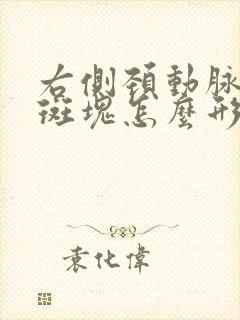 右側頚動脉
斑塊怎麼形
袁化偉